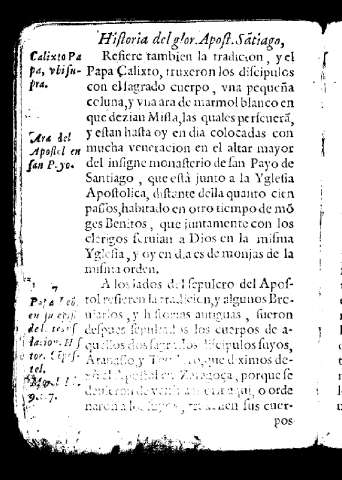 Historia del glor. Apost. Sãtiago,
Calixto Pa
pa, vbi su-
pra.
Ara del
Apostol en
san Payo.
Refiere tambien la tradicion, y el
Papa Calixto, truxeron los discipulos
con el sagrado cuerpo, vna pequeña
coluna, y vna ara de marmol blanco en
que dezian Missa, las quales perseuerã,
y estan hasta oy en dia colocadas con
mucha veneracion en el altar mayor
del insigne monasterio de san Payo de
Santiago, que está junto a la Yglesia
Apostolica, distante della quanto cien
passos, habitado en otro tiempo de mõ
ges Benitos, que juntamente con los
clerigos seruian a Dios en la misma
Yglesia, y oy en dia es de monjas de la
misma orden.
Papa Leõ,
en su epist.
de
A los lados del sepulcro del Apos-
tol refieren la tradicion, y algunos Bre-
uiarios, y historias antiguas, fueron
despues sepultados los cuerpos de a-
quellos dos sagrados discipulos suyos,
Atanasio, y que diximos de-
xó el Apostol en Zaragoça, porque se
o orde
naron a los suyos, sus cuer-
pos